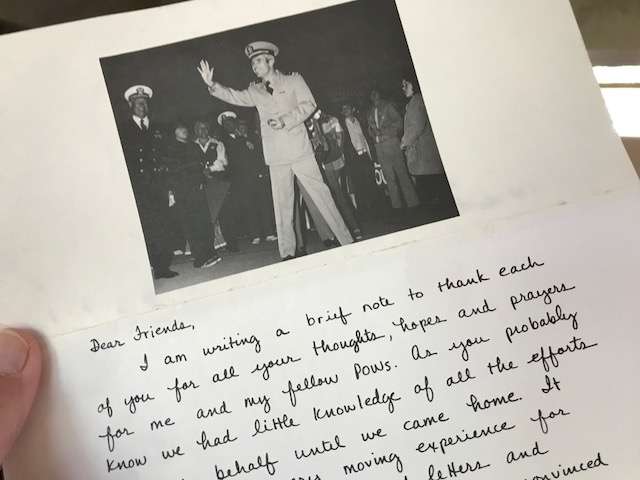 Dear Friends,
I am writing a brief note to thank each
of you for all your thoughts, hopes and prayers
for me and my fellow POWs. As you probably
know we had little knowledge of all the efforts
behalf until we came home. It
moving experience for
letters and
convinced